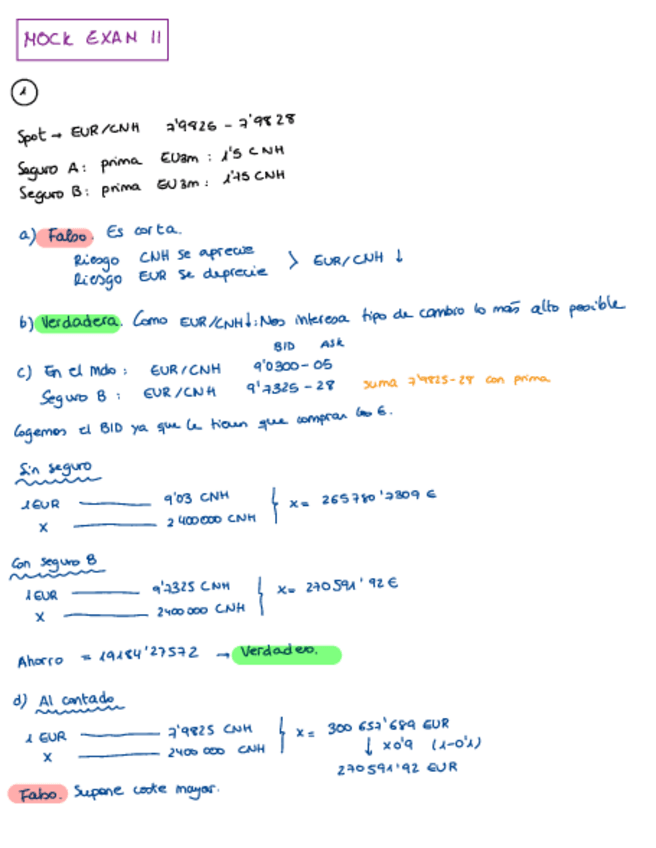 MOCK EXAM II
1
Spot → EUR/CNH 7'9825 - 7'9828
Seguro A: prima EU3m: 1'5 CNH
Seguro B: prima EU3m: 1'75 CNH
a) Falso. Es corta.
Riesgo CNH se aprecie
Riesgo EUR se deprecie > EUR/CNH ↓
b) Verdadera. Como EUR/CNH↓: Nos interesa tipo de cambio lo más alto posible
BID ASK
c) En el Mdo: EUR/CNH 9'0300-05
Seguro B: EUR/CNH 9'7325-28 suma 7'9825-28 con prima
Cogemos el BID ya que le tienen que comprar los €.
Sin seguro
1 EUR — 9'03 CNH
x — 2400000 CNH } x = 265780'7309 €
Con seguro B
1 EUR — 9'7325 CNH
x — 2400000 CNH } x = 270591'92 €
Ahorro = 19184'27572 → Verdadero.
d) Al contado
1 EUR — 7'9825 CNH
x — 2400 000 CNH } x = 300 657'689 EUR
↓ x0'9 (1-0'1)
270591'92 EUR
Falso. Supone coste mayor.